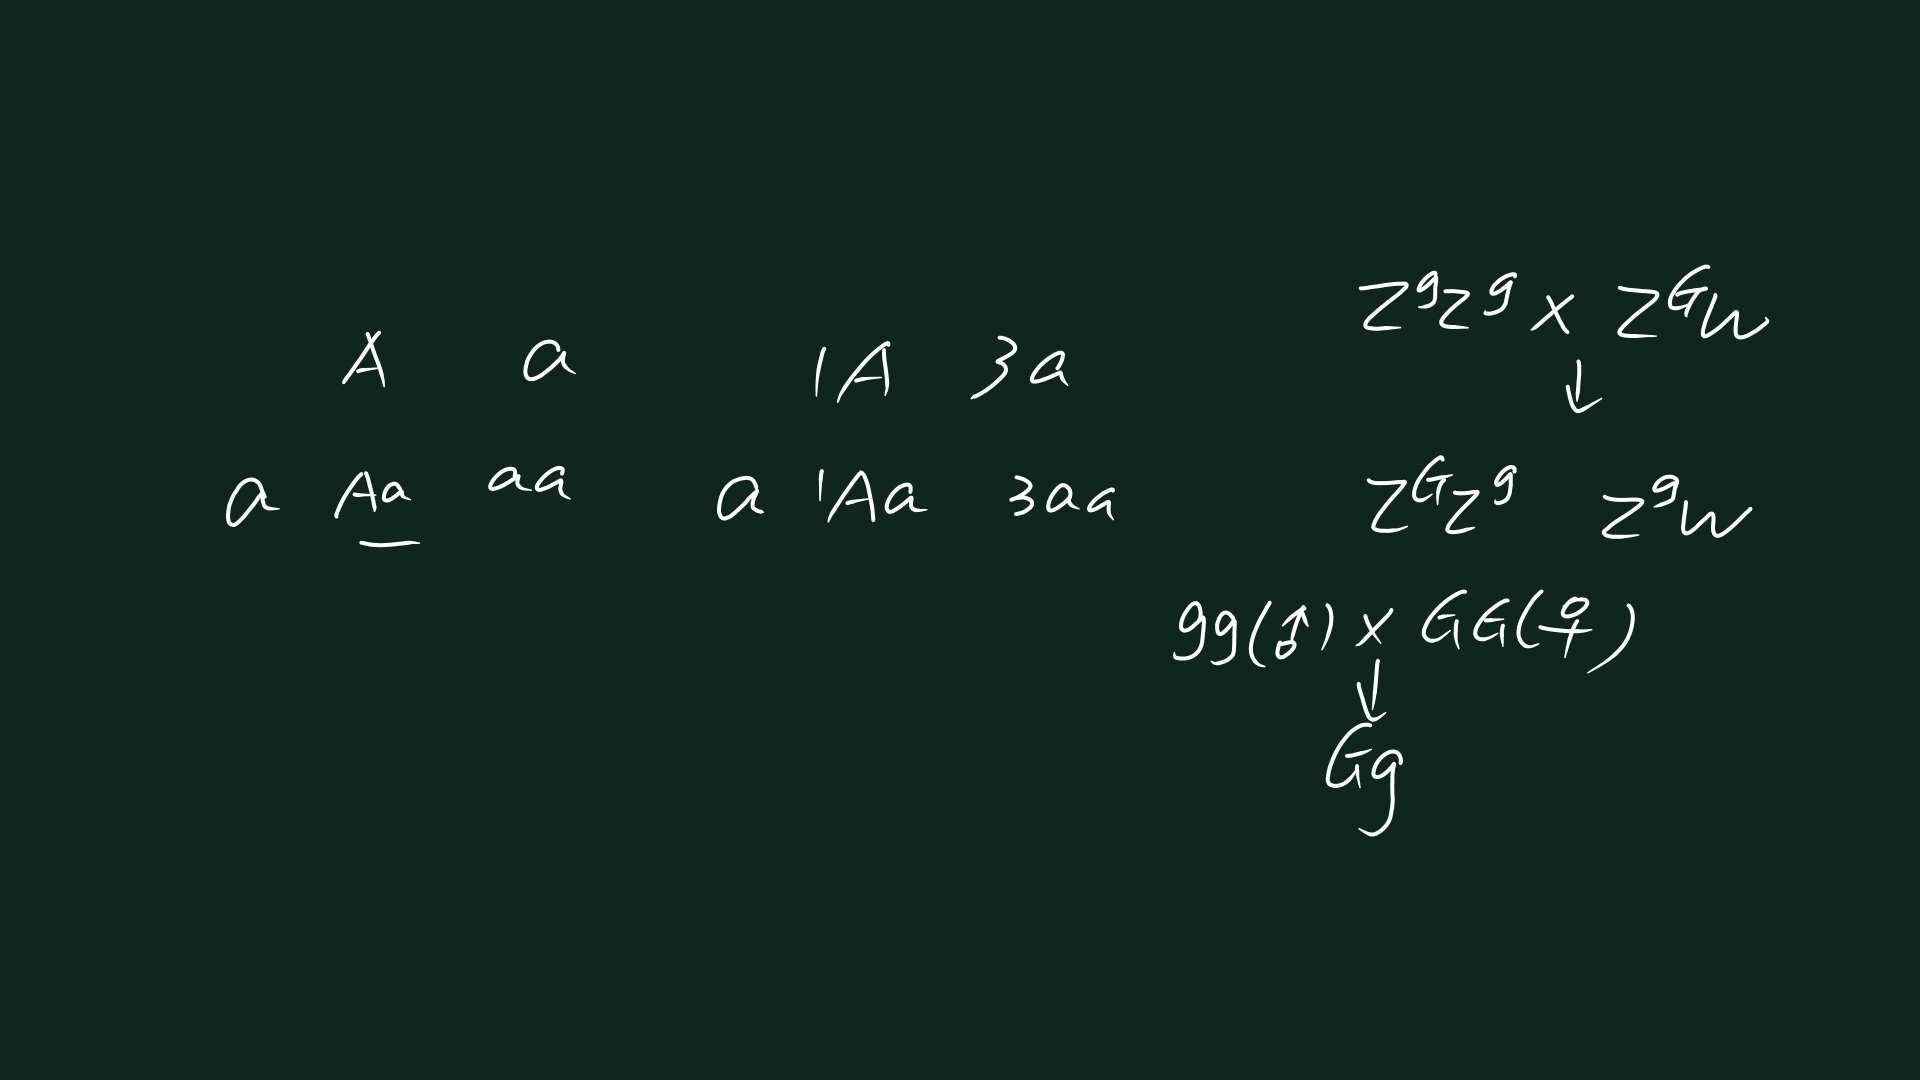 A a
a Aa aa
1A 3a
a 1Aa 3aa
Z^g Z^g × Z^G W
↓
Z^G Z^g Z^g W
gg(♂) × GG(♀)
↓
Gg